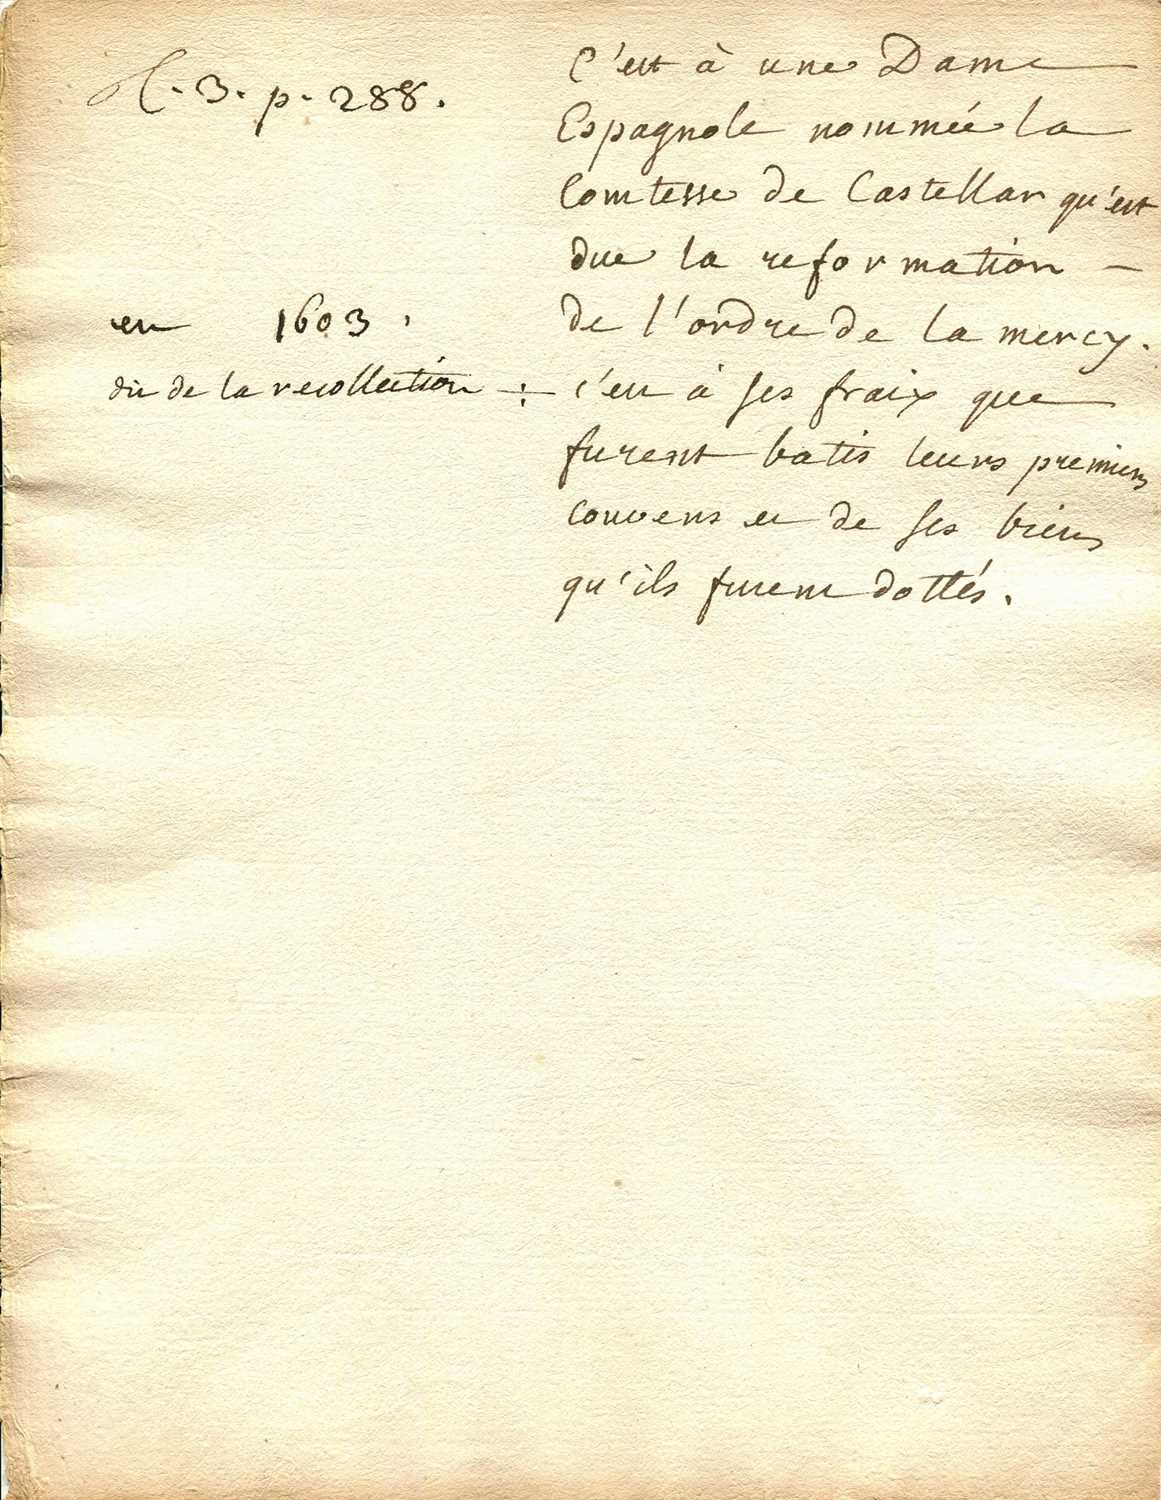 t. 3. p. 288.
en 1603.
dit de la recollection ÷
C'est à une Dame
Espagnole nommée la
Comtesse de Castellar qu'est
due la reformation -
de l'ordre de la mercy.
c'est à ses fraix que
furent batis leurs premiers
couvens et de ses biens
qu'ils furent dottés.